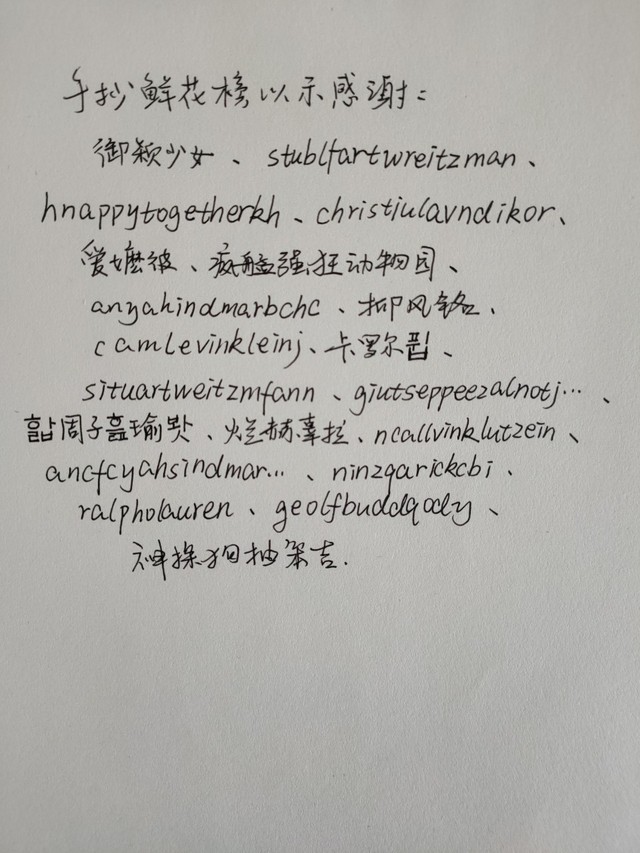 手抄鲜花榜以示感謝：
御颖少女、stublfartwreitzman、
hnappytogetherkh、christiulavndikor、
爱嬷彼、疯狂动物园、
anyahindmarbchc、柳风铭、
camlevinkleinj、卡罗尔픱、
situartweitzmfann、giutseppeezalnotj…、
周子瑜、烂赫辜拉、ncallvinklutzein、
ancfcyahsindmar…、ninzgarickcbi、
ralpholauren、geolfbuddqody、
神探狗抽架吉.